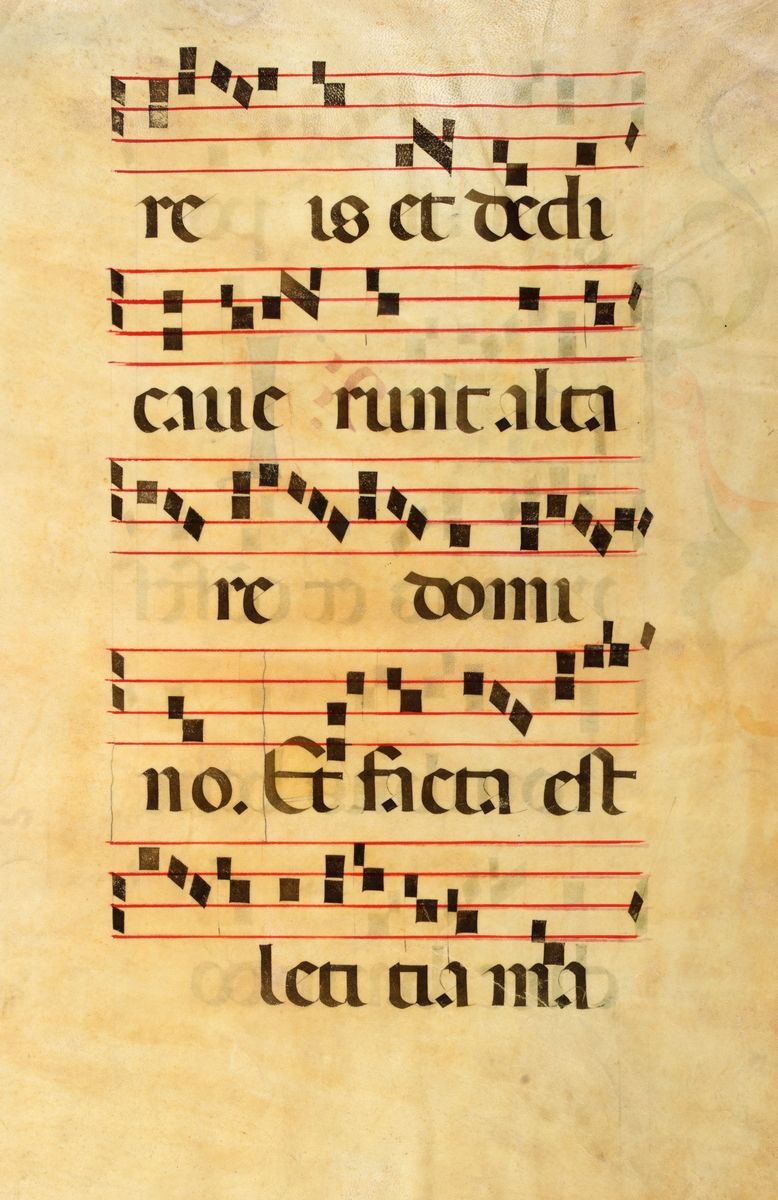 re is et dedi
caue runt alta
re domi
no. Et facta est
leti tia ma